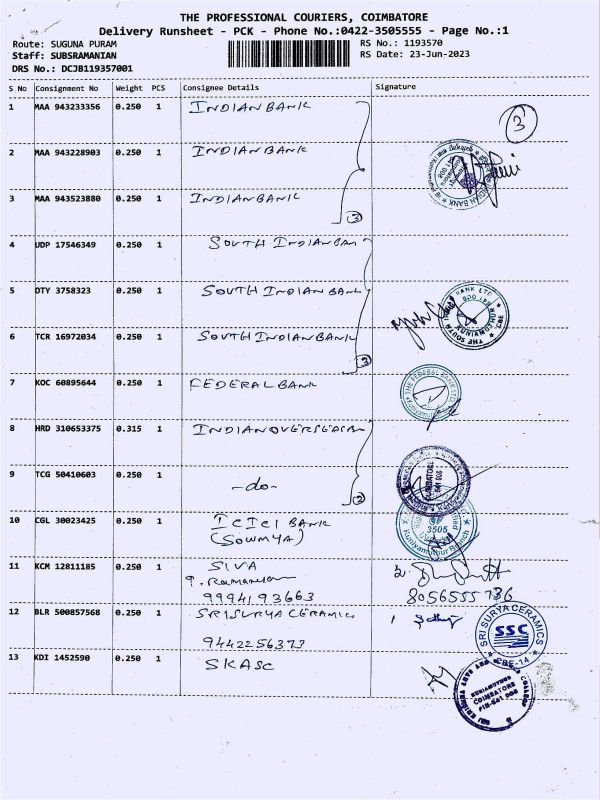 THE PROFESSIONAL COURIERS, COIMBATORE
Delivery Runsheet - PCK - Phone No.:0422-3505555 - Page No.:1
Route: SUGUNA PURAM RS No.: 1193570
Staff: SUBSRAMANIAN RS Date: 23-Jun-2023
DRS No.: DCJB119357001
S No Consignment No Weight PCS Consignee Details Signature
1 MAA 943233356 0.250 1 INDIAN BANK
3
2 MAA 943228903 0.250 1 INDIAN BANK
3 MAA 943523880 0.250 1 INDIAN BANK
3
4 UDP 17546349 0.250 1 SOUTH INDIAN BAN
5 DTY 3758323 0.250 1 SOUTH INDIAN BANK
6 TCR 16972034 0.250 1 SOUTH INDIAN BANK
3
7 KOC 60895644 0.250 1 FEDERAL BANK
THE FEDERAL BANK LTD
8 HRD 310653375 0.315 1 INDIAN OVERSEAS BA
9 TCG 50410603 0.250 1 -do-
2
COIMBATORE
10 CGL 30023425 0.250 1 ICICI BANK
(SOWMYA)
3505
Kuniyamuthur Branch
11 KCM 12811185 0.250 1 SIVA
9994193663 8056555736
12 BLR 500857568 0.250 1 SRISURYA CERAMICS
9442256373
SRI SURYA CERAMICS
SSC
CBE-14
13 KDI 1452590 0.250 1 SKASC
COIMBATORE